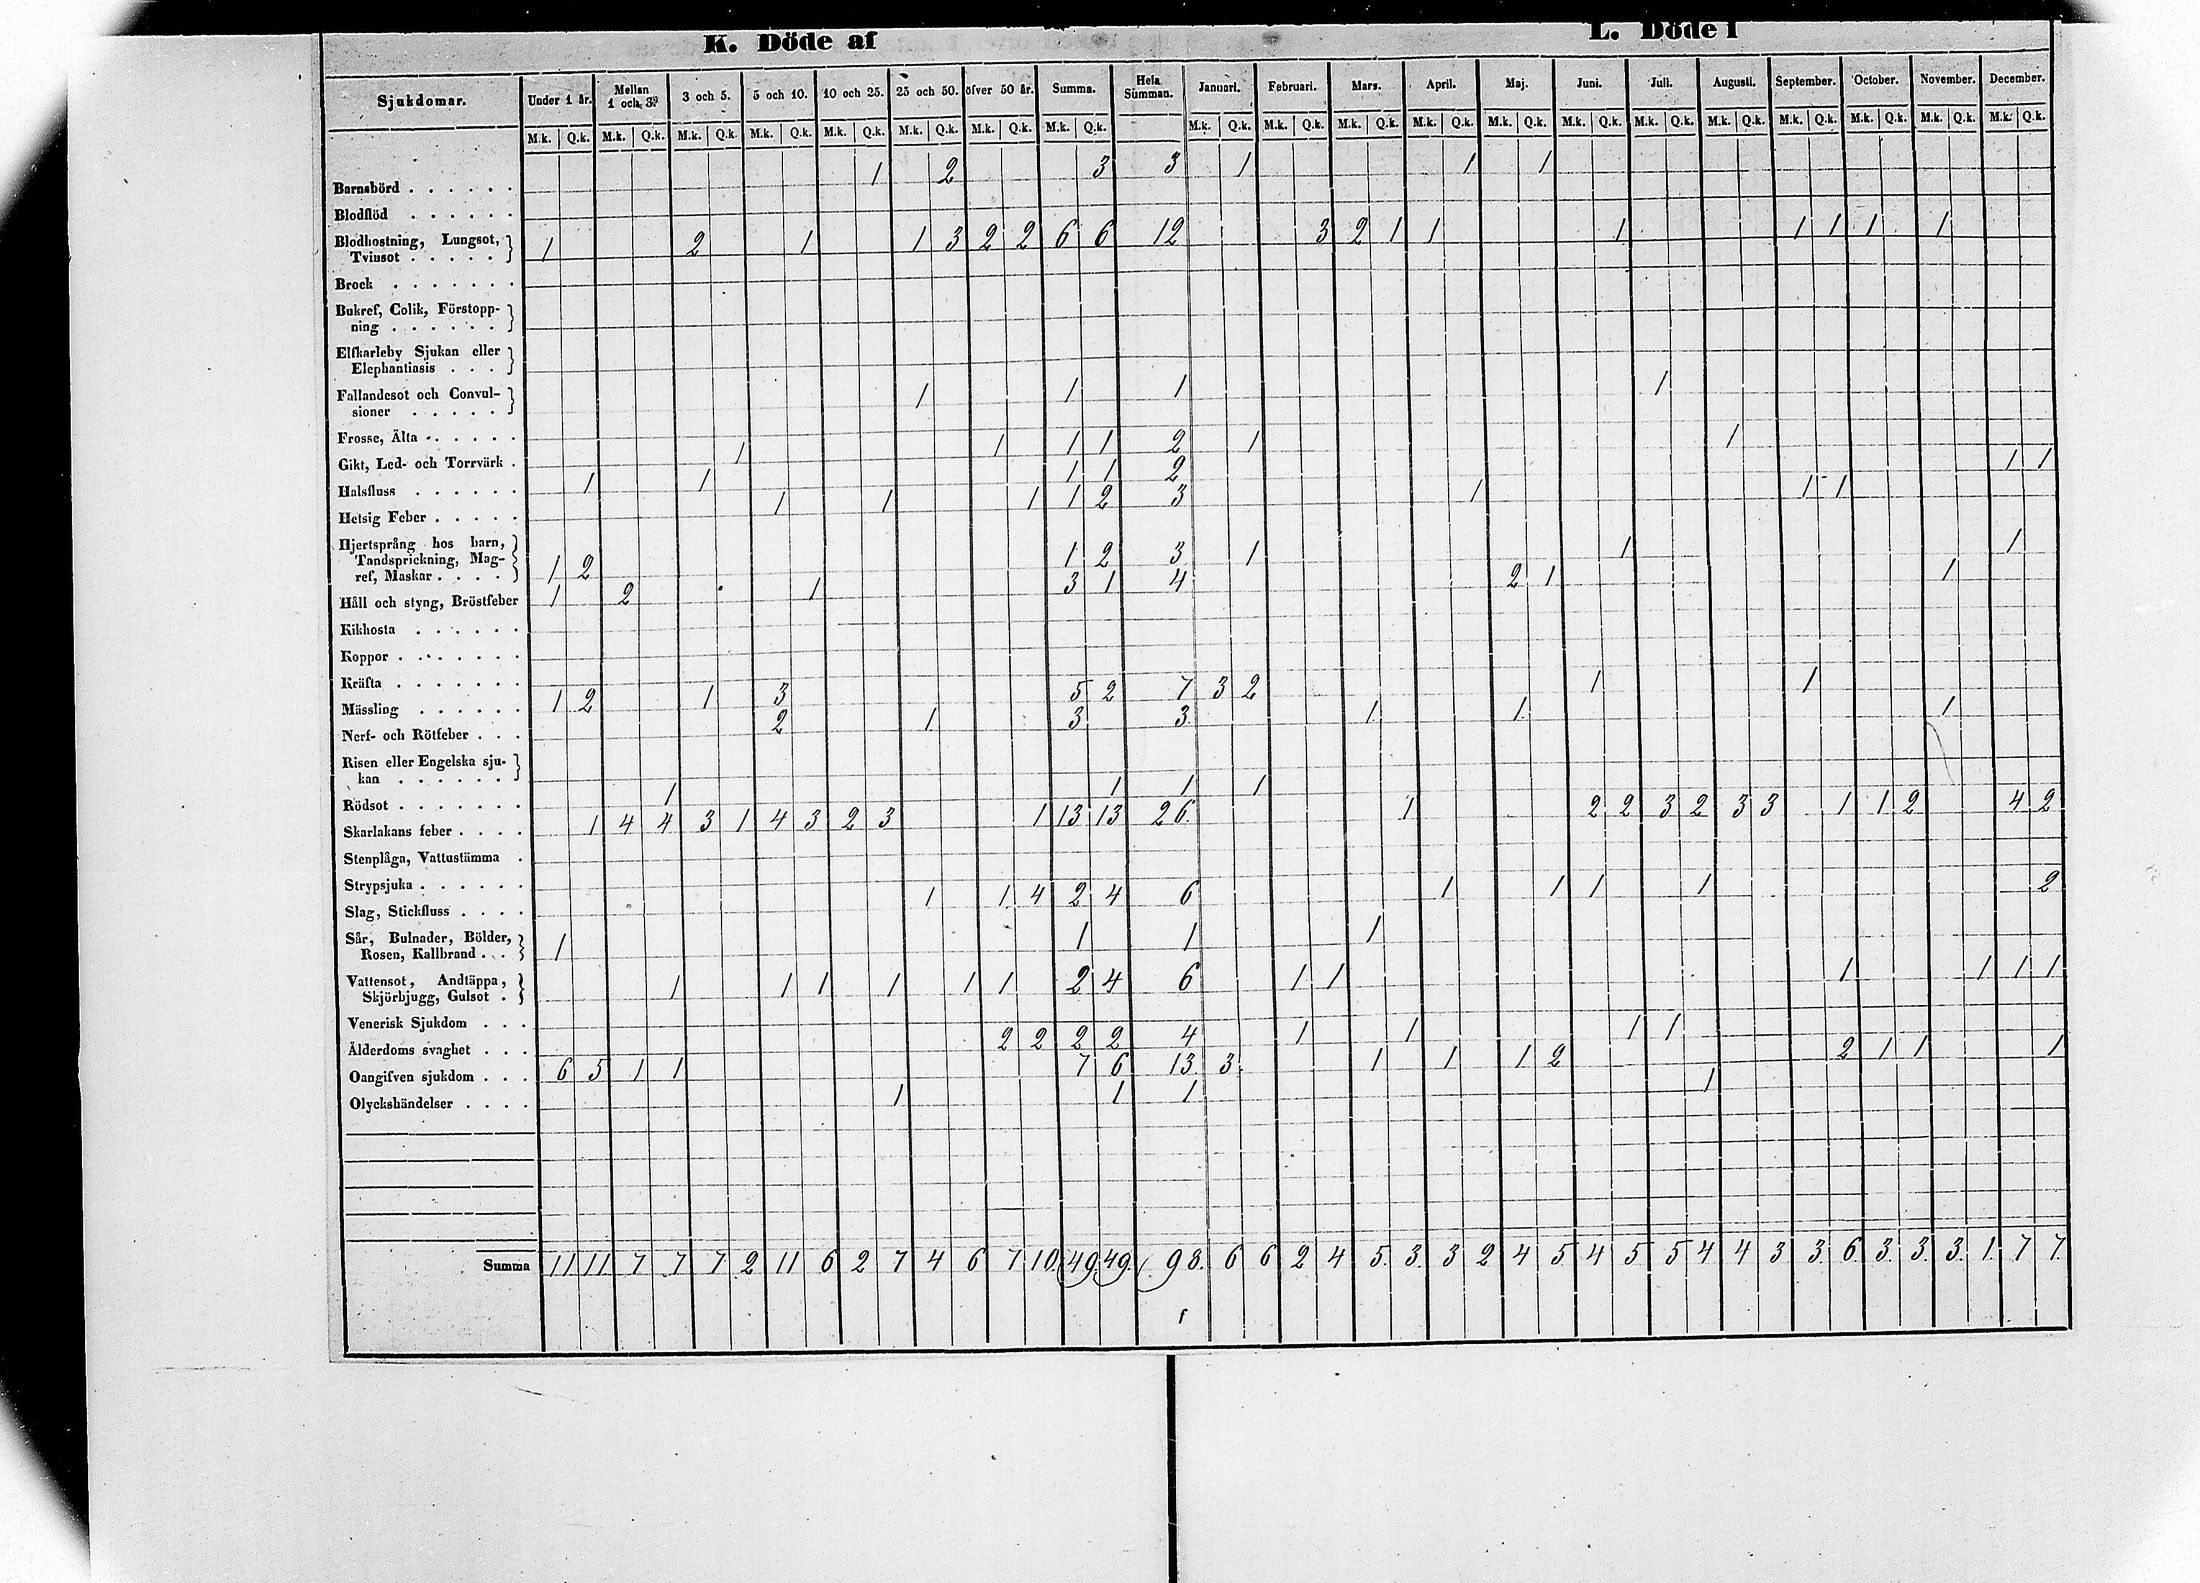 K. Döde af L. Döde i
Sjukdomar. Under 1 år. Mellan 1 och 3. 3 och 5. 5 och 10. 10 och 25. 25 och 50. öfver 50 år. Summa. Hela Summan. Januari. Februari. Mars. April. Maj. Juni. Juli. Augusti. September. October. November. December.
M.k. Q.k. M.k. Q.k. M.k. Q.k. M.k. Q.k. M.k. Q.k. M.k. Q.k. M.k. Q.k. M.k. Q.k. M.k. Q.k. M.k. Q.k. M.k. Q.k. M.k. Q.k. M.k. Q.k. M.k. Q.k. M.k. Q.k. M.k. Q.k. M.k. Q.k. M.k. Q.k. M.k. Q.k. M.k. Q.k.
Barnsbörd . . . . . . 1 2 3 3 1 1 1
Blodflöd . . . . . .
Blodhostning, Lungsot, } 1 2 1 1 3 2 2 6 6 12 3 2 1 1 1 1 1 1 1
Tvinsot . . . . . }
Brock . . . . . . .
Bukref, Colik, Förstopp- }
ning . . . . . . }
Elfkarleby Sjukan eller }
Elephantiasis . . . }
Fallandesot och Convul- } 1 1 1 1
sioner . . . . . }
Frosse, Älta . . . . . .
Gikt, Led- och Torrvärk . 1 1 1 1 2 1 1
Halsfluss . . . . . . 1 1 1 1 2 1 1
Hetsig Feber . . . . . 1 1 1 1 2 3 1 1 1
Hjertsprång hos barn, }
Tandsprickning, Mag- } 1 2 1 2 3 1 1 1
ref, Maskar . . . . }
Håll och styng, Bröstfeber 1 2 1 3 1 4 2 1 1
Kikhosta . . . . . .
Koppor . . . . . . .
Kräfta . . . . . . .
Mässling . . . . . . 1 2 1 3 5 2 7 3 2 1 1
Nerf- och Rötfeber . . . 2 1 3 3 1 1 1
Risen eller Engelska sju- }
kan . . . . . . }
Rödsot . . . . . . . 1 1 1 1
Skarlakans feber . . . . 1 4 4 3 1 4 3 2 3 1 13 13 26 1 2 2 3 2 3 3 1 1 2 4 2
Stenplåga, Vattustämma .
Strypsjuka . . . . . .
Slag, Stickfluss . . . . 1 1 4 2 4 6 1 1 1 1 2
Sår, Bulnader, Bölder, } 1 1 1 1
Rosen, Kallbrand . . . }
Vattensot, Andtäppa, } 1 1 1 1 1 1 2 4 6 1 1 1 1 1 1
Skjörbjugg, Gulsot . }
Venerisk Sjukdom . . .
Ålderdoms svaghet . . . 2 2 2 2 4 1 1 1 1
Oangifven sjukdom . . . 6 5 1 1 7 6 13 3 1 1 1 2 2 1 1 1
Olyckshändelser . . . . 1 1 1 1
Summa 11 11 7 7 7 2 11 6 2 7 4 6 7 10 49 49 98. 6 6 2 4 5. 3. 3 2 4 5 4 5 5 4 4 3 3 6 3. 3. 3. 1. 7 7.